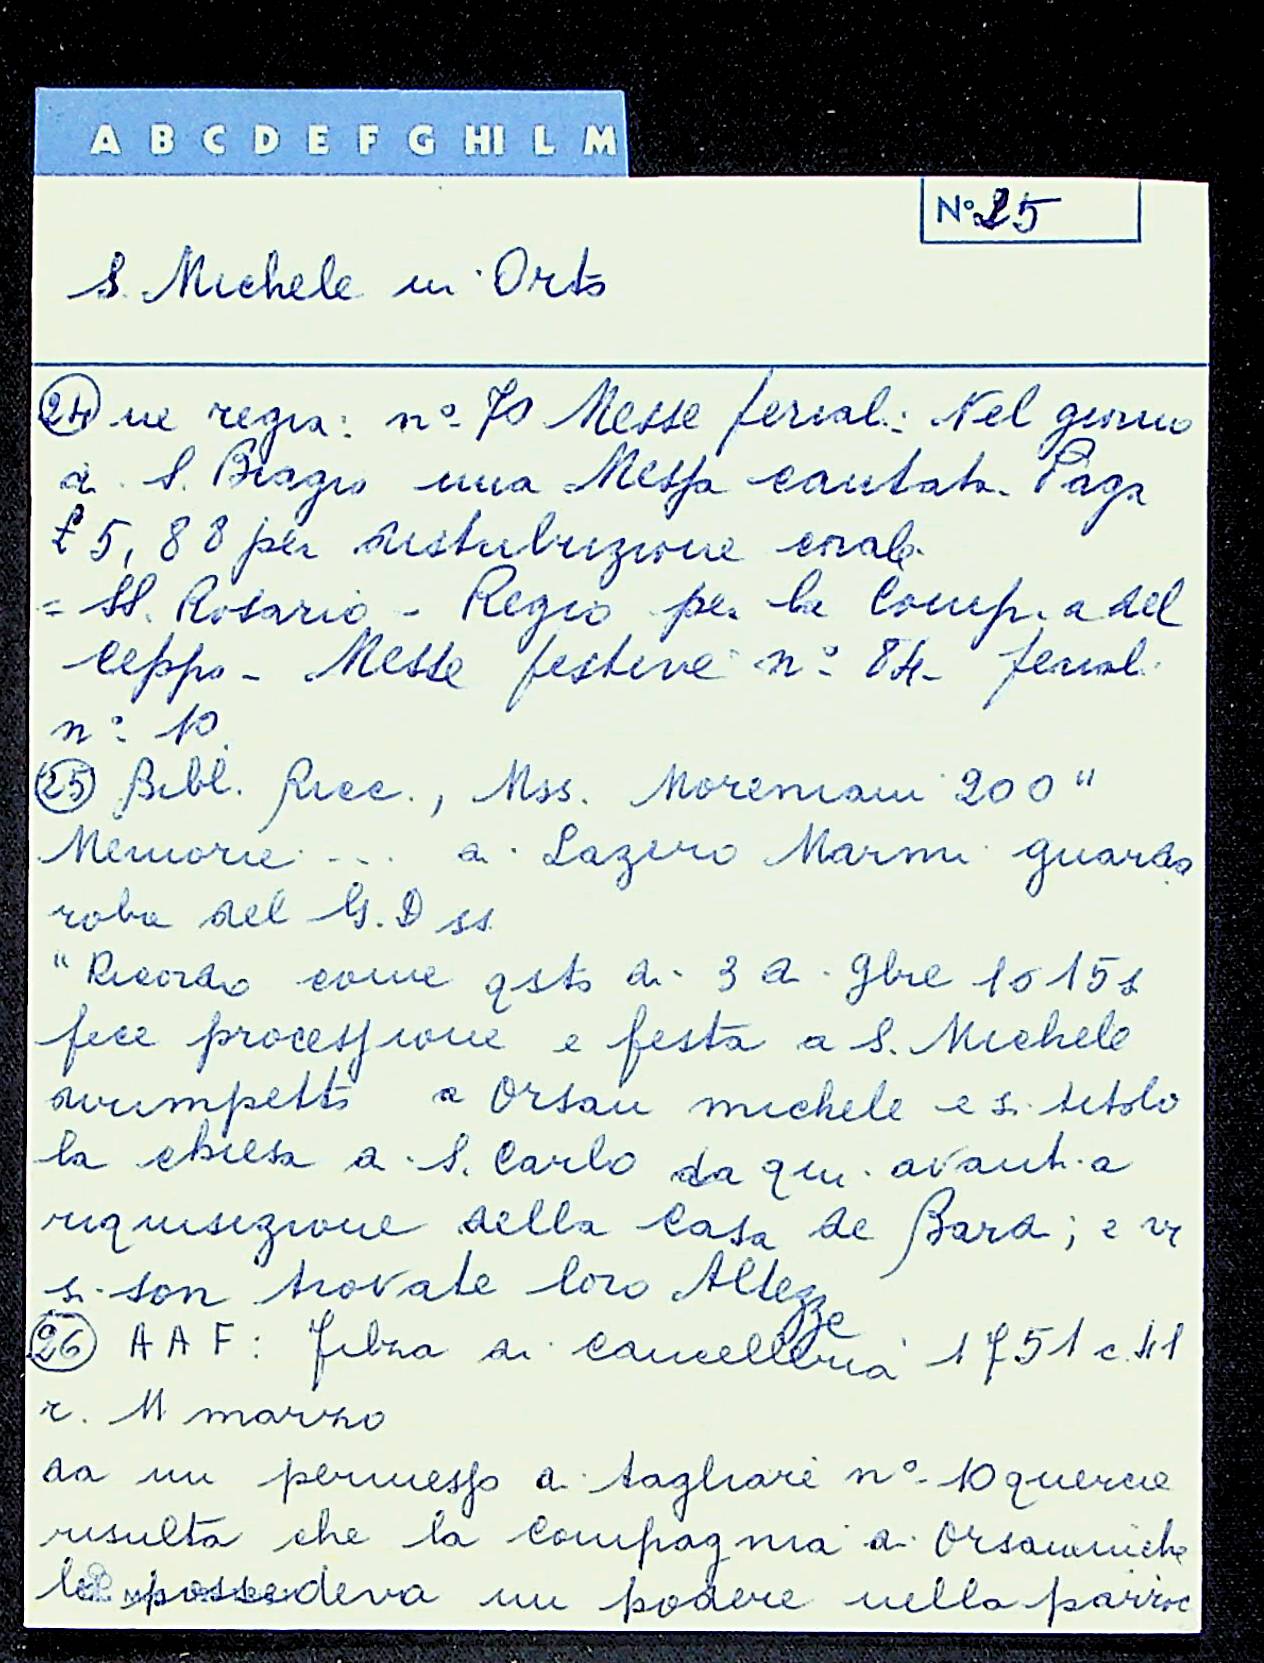 A B C D E F G HI L M
No 25
S. Michele in Orto
24 ne regia: n° 70 Messe feriali: Nel giorno
di S. Biagio una Messa cantata. Paga
£ 5,88 per distribuzione corale
= SS. Rosario - Regio per la Comp.a del
Ceppo - Messe festive n° 84 - feriali
n° 10
25 Bibl. Ricc., Mss. Moreniani 200 "
Memorie ... di Lazero Marmi guarda
roba del G.D ss.
"Ricordo come qsto dì 3 di 9bre 1615 s
fece processione e festa a S. Michele
dirimpetto a Orsan michele e si titolò
la chiesa a S. Carlo da qui avanti a
riquisizione della Casa de Bardi; e vi
si son trovate loro Altezze
26 A A F: Filza di cancelleria 1751 c. 41
r. 11 marzo
da un permesso di tagliare n° 10 querce
risulta che la Compagnia di Orsanmiche
le possedeva un podere nella parroc